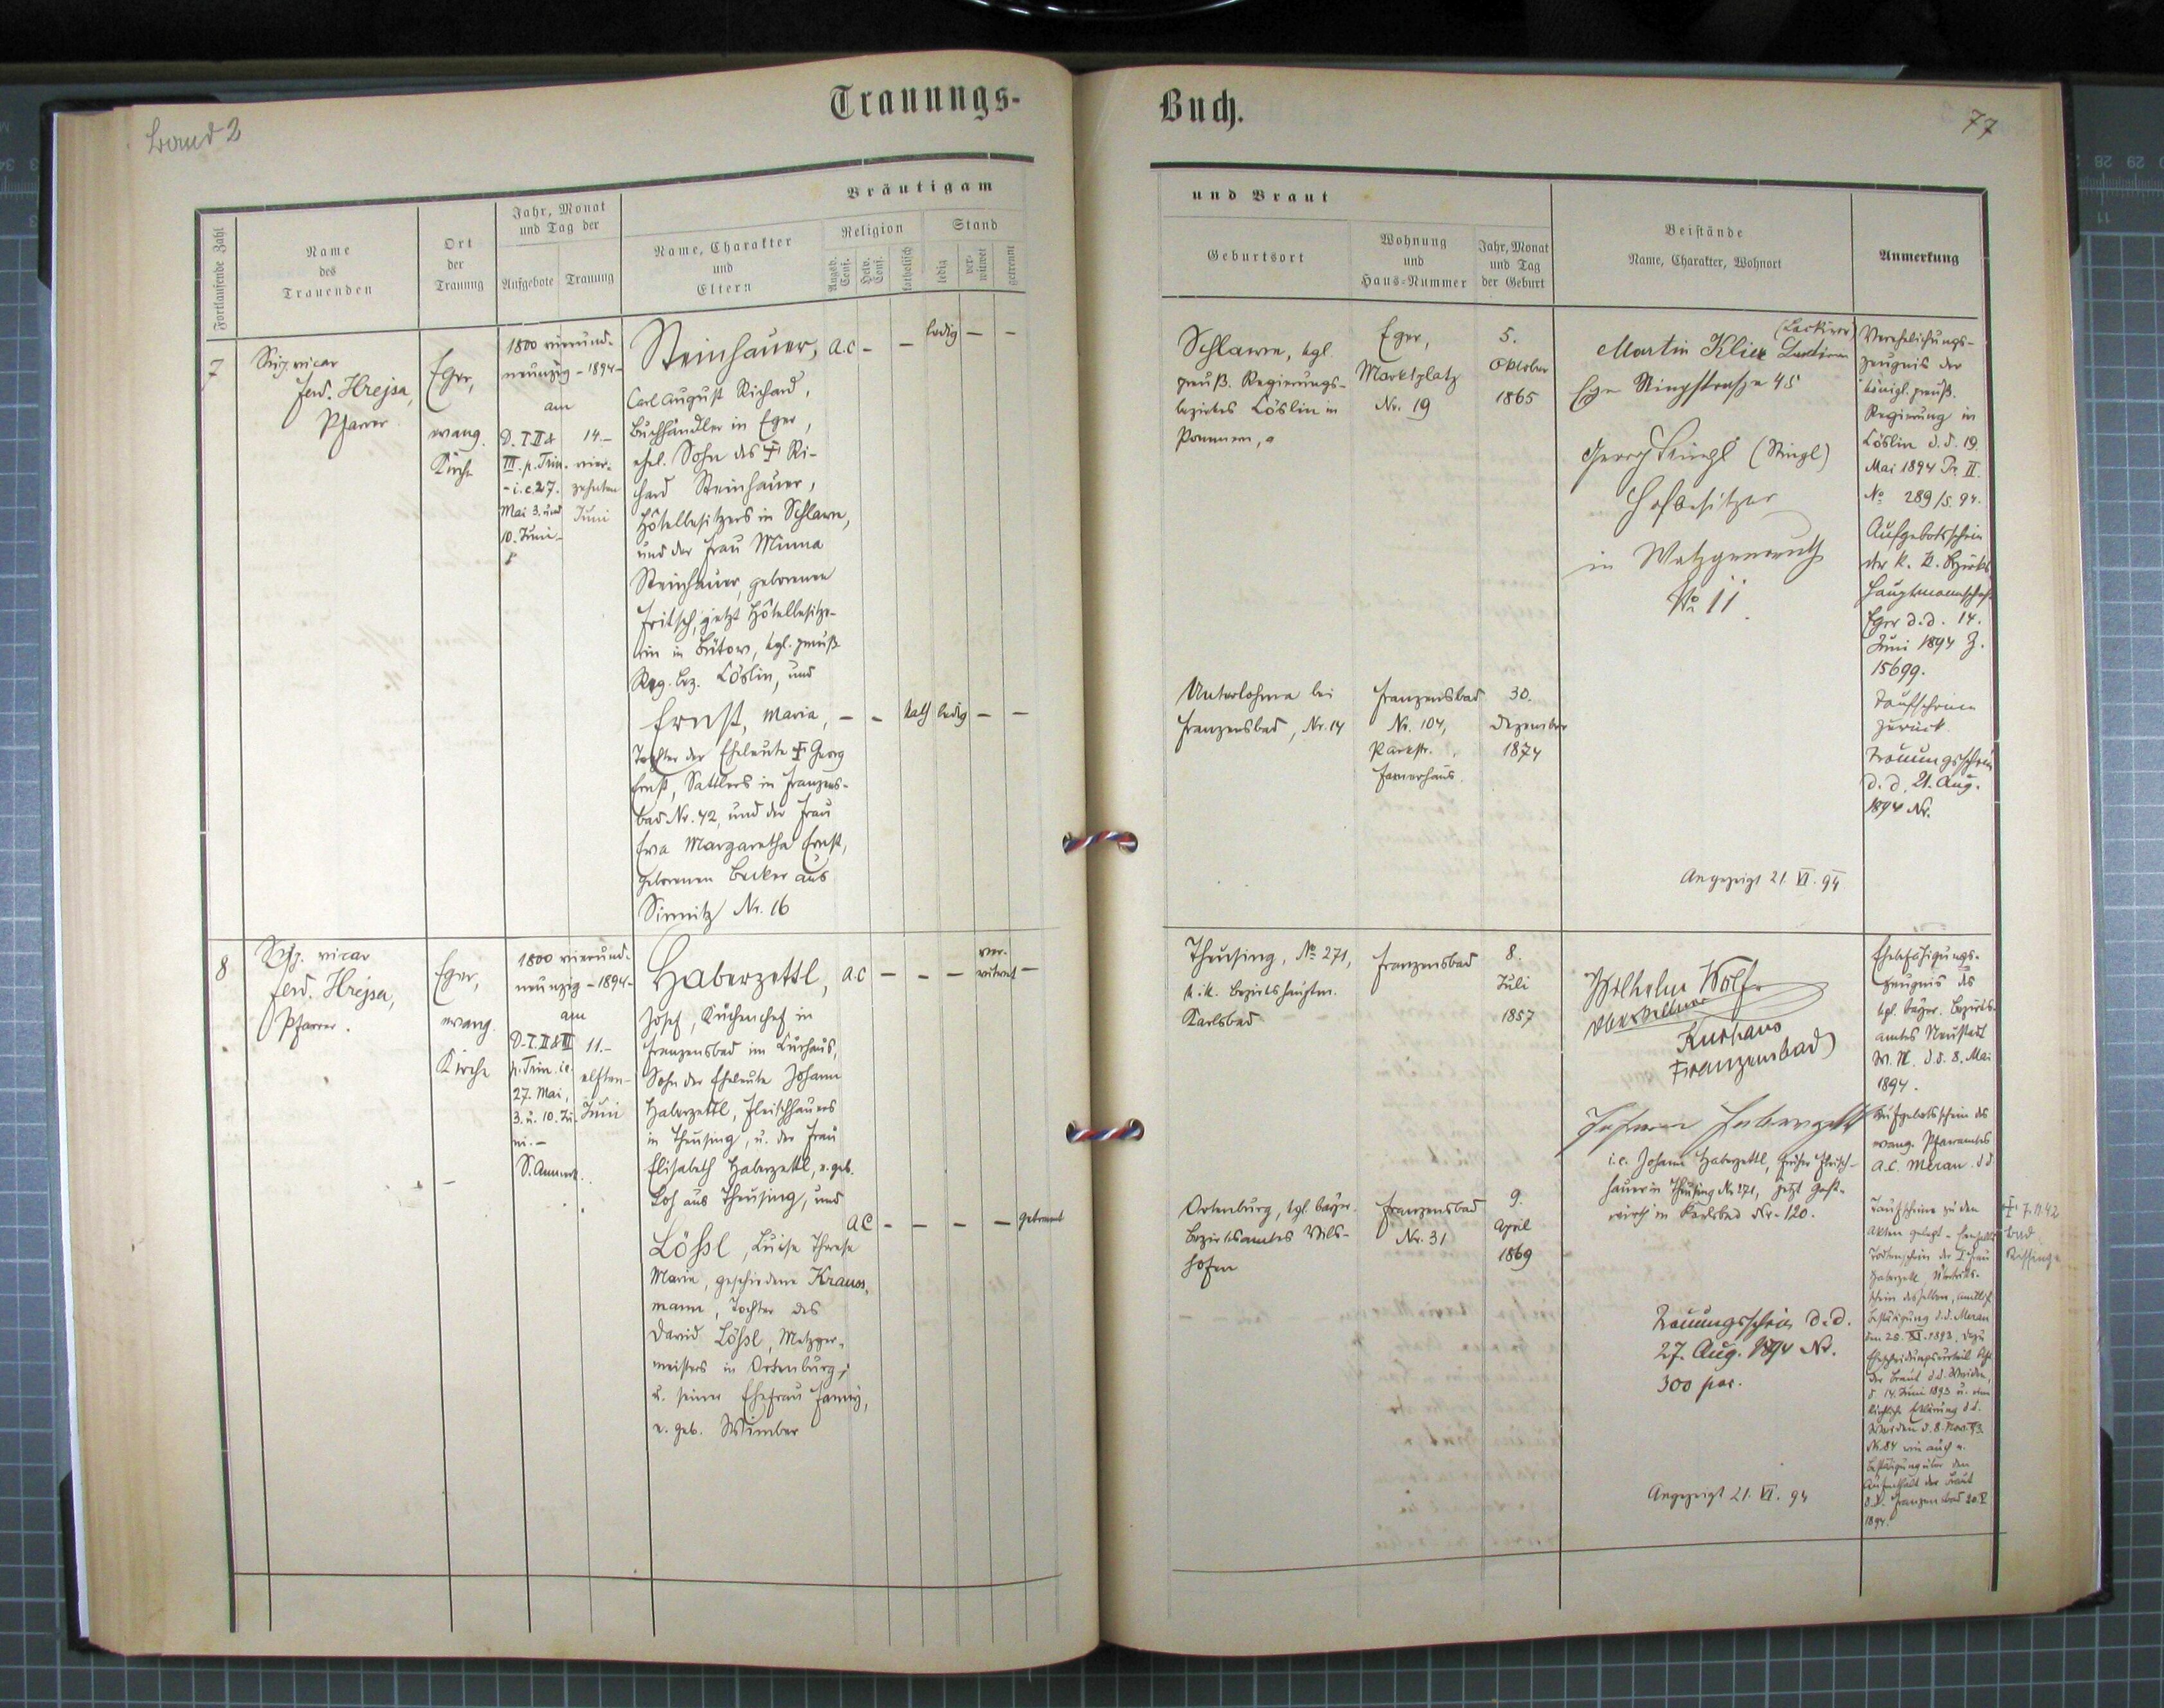 Band 2
Trauungs-
Buch.
77
Fortlaufende Zahl
Name
des
Trauenden
Ort
der
Trauung
Jahr, Monat
und Tag der
Aufgebote
Trauung
Bräutigam
Name, Charakter
und
Eltern
Religion
Augsb. Conf.
Helv. Conf.
katholisch
Stand
ledig
verwitwet
getrennt
und Braut
Geburtsort
Wohnung
und
Haus-Nummer
Jahr, Monat
und Tag
der Geburt
Beistände
Name, Charakter, Wohnort
Anmerkung
7
vicar
Ferd. Hrejsa,
Pfarrer
Eger,
evang.
Kirche
1800 vierund-
neunzig - 1894 -
am
D. I. II &
III. p. Trin.
- i. e. 27.
Mai 3. und
10. Juni -
14.-
vier-
zehnten
Juni
Steinhauer,
Carl August Richard,
Buchhändler in Eger,
ehel. Sohn des † Ri-
chard Steinhauer,
Hôtelbesitzers in Schlawe,
und der Frau Minna
Steinhauer, geborenen
Fritsch, jetzt Hôtelbesitze-
rin in Bütow, kgl. preuß
Reg. bez. Cöslin, und
a.c - - ledig - -
Ernst, Maria, - - kath ledig - -
Tochter der Eheleute † Georg
Ernst, Sattlers in Franzens-
bad Nr. 42, und der Frau
Eva Margaretha Ernst,
geborenen Becker aus
Sirmitz Nr. 16
Schlawe, kgl.
preuß. Regierungs-
bezirkes Cöslin in
Pommern,
Eger,
Marktplatz
Nr. 19
5.
Oktober
1865
Martin Klier (Lackirer)
Eger Ringstraße 45
Georg (Stingl)
Hofbesitzer
in Watzgenreuth
No 11.
Verehelichungs-
zeugnis der
königl. preuß.
Regierung in
Cöslin d. d. 19.
Mai 1894 Pr. II.
No 289/5. 94.
Aufgebotsschein
der k. k. Bezirks
hauptmannschaft
Eger d. d. 14.
Juni 1894 Z.
15699.
Taufscheine
zurück.
Trauungsschein
d. d. 21. Aug.
1894 Nr.
Unterlohma bei
Franzensbad, Nr. 14
Franzensbad
Nr. 104,
Parkstr.
30.
Dezember
1874
Angezeigt 21. VI. 94
8
vicar
Ferd. Hrejsa,
Pfarrer.
Eger,
evang.
Kirche
1800 vierund-
neunzig - 1894 -
am
D. I. II & III
p. Trin. i.e.
27. Mai,
3. u. 10. Ju-
ni. -
S. Anmerk.
11.-
elften-
Juni
Haberzettl, a.c - - - ver-
witwet -
Josef, Küchenchef in
Franzensbad im Curhaus,
Sohn der Eheleute Johann
Haberzettl, Fleischhauers
in Theusing, u. der Frau
Elisabeth Haberzettl, e. geb.
aus Theusing, und
AC - - - - getrennt
Lößl, Luise Therese
Maria, geschiedene Krauss-
mann, Tochter des
David Lößl, Metzger-
meisters in Ortenburg,
u. seiner Ehefrau Fanny,
e. geb. Wimber
Theusing, No 271,
k. k. Bezirkshauptm.
Karlsbad
Franzensbad
8.
Juli
1857
Wilhelm Wolf
Oberkellner
Kurhaus
Franzensbad
Johann Haberzettl
i. e. Johann Haberzettl, früher Fleisch-
hauer in Theusing No 271, jetzt Gast-
wirth in Karlsbad Nr. 120.
Ehefähigungs-
zeugnis des
kgl. bayer. Bezirks-
amtes Neustadt
W. N. d. d. 8. Mai
1894.
Aufgebotsschein des
evang. Pfarramtes
A.C. Meran d d
Taufscheine zu den
Akten gelegt - Ebenfalls
Todtenschein der I Frau
Haberzettl,
schein desselben, amtlich
Bestätigung d. d. Meran
den 28. XI. 1893, dazu
Ehescheidungsurteil
der Braut d. d. Weiden,
d. 14. Juni 1893 u. eine
Erklärung d d.
Weiden d. 8. Nov. 93.
No 84 wie auch e.
Bestätigung über den
Aufenthalt der Braut
d. d. Franzensbad 20. V.
1894.
† 7.11.42
Bad
Kissingen
Ortenburg, kgl. bayer.
Bezirksamtes Vils-
hofen
Franzensbad
Nr. 31
9.
April
1869
Trauungsschein d. d.
27. Aug. 1894 Nr.
300
Angezeigt 21. VI. 94